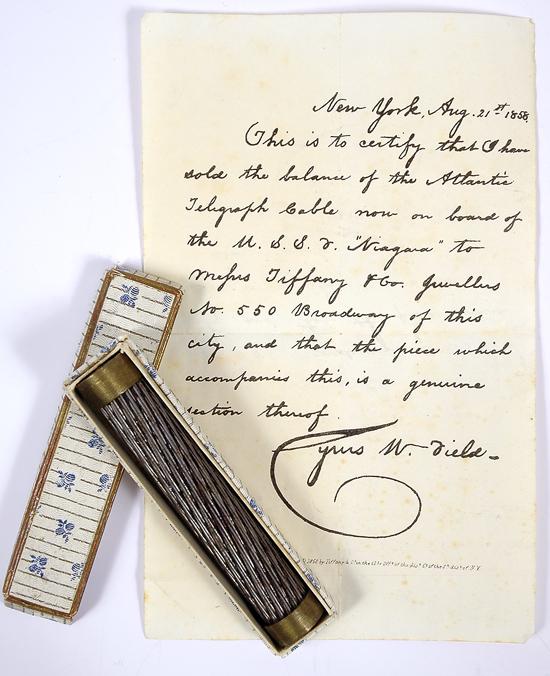 New York, Aug. 21st 1858.
This is to certify that I have
sold the balance of the Atlantic
Telegraph Cable now on board of
the U. S. S. F. "Niagara" to
Messrs Tiffany & Co. Jewellers
No. 550 Broadway of this
city, and that the piece which
accompanies this, is a genuine
section thereof.
Cyrus W. Field
1858 by Tiffany & Co in the Cl's Off. of the Dist Ct of the Sn Dist of N.Y.